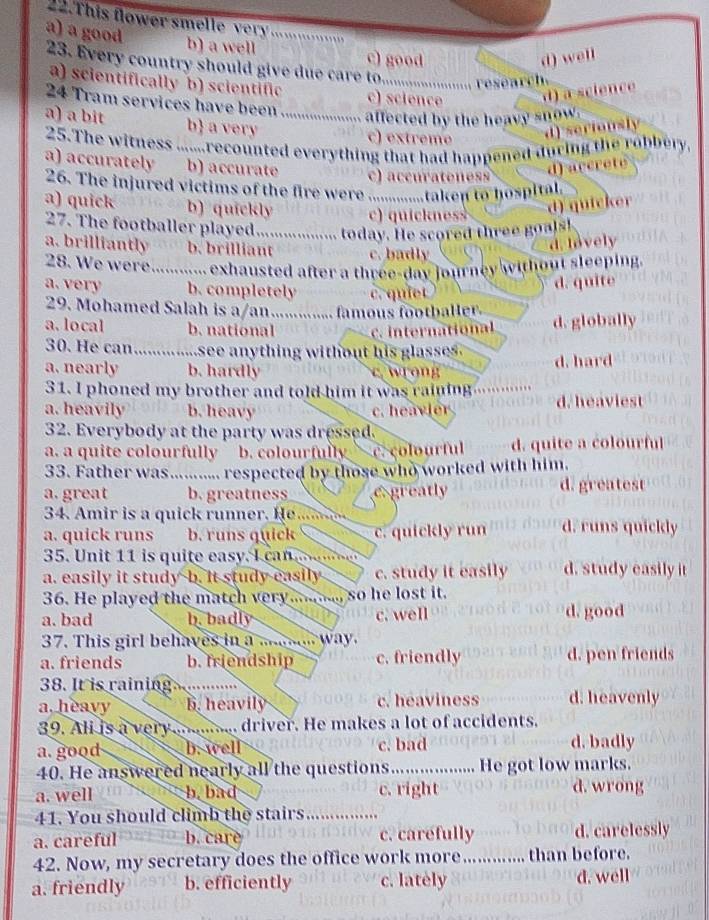 22.This flower smelle very................
a) a good b) a well c) good d) well
23. Every country should give due care to.................... research.
a) scientifically b) scientific c) science d) a science
24 Tram services have been .................. affected by the heavy snow.
a) a bit b) a very c) extreme d) seriously
25.The witness ......recounted everything that had happened during the robbery.
a) accurately b) accurate c) accurateness d) accrete
26. The injured victims of the fire were .............taken to hospital.
a) quick b) quickly c) quickness d) quicker
27. The footballer played................ today. He scored three goals!
a. brilliantly b. brilliant c. badly d. lovely
28. We were............ exhausted after a three-day journey without sleeping.
a. very b. completely c. quiet d. quite
29. Mohamed Salah is a/an............. famous footballer.
a. local b. national c. international d. globally
30. He can..............see anything without his glasses.
a. nearly b. hardly c. wrong d. hard
31. I phoned my brother and told him it was raining.............
a. heavily b. heavy c. heavier d. heaviest
32. Everybody at the party was dressed.
a. a quite colourfully b. colourfully c. colourful d. quite a colourful
33. Father was........... respected by those who worked with him.
a. great b. greatness c. greatly d. greatest
34. Amir is a quick runner. He...........
a. quick runs b. runs quick c. quickly run d. runs quickly
35. Unit 11 is quite easy. I can..............
a. easily it study b. it study easily c. study it easily d. study easily it
36. He played the match very............, so he lost it.
a. bad b. badly c. well d. good
37. This girl behaves in a ............ way.
a. friends b. friendship c. friendly d. pen friends
38. It is raining..............
a. heavy b. heavily c. heaviness d. heavenly
39. Ali is a very.............. driver. He makes a lot of accidents.
a. good b. well c. bad d. badly
40. He answered nearly all the questions.................. He got low marks.
a. well b. bad c. right d. wrong
41. You should climb the stairs................
a. careful b. care c. carefully d. carelessly
42. Now, my secretary does the office work more............. than before.
a. friendly b. efficiently c. lately d. well